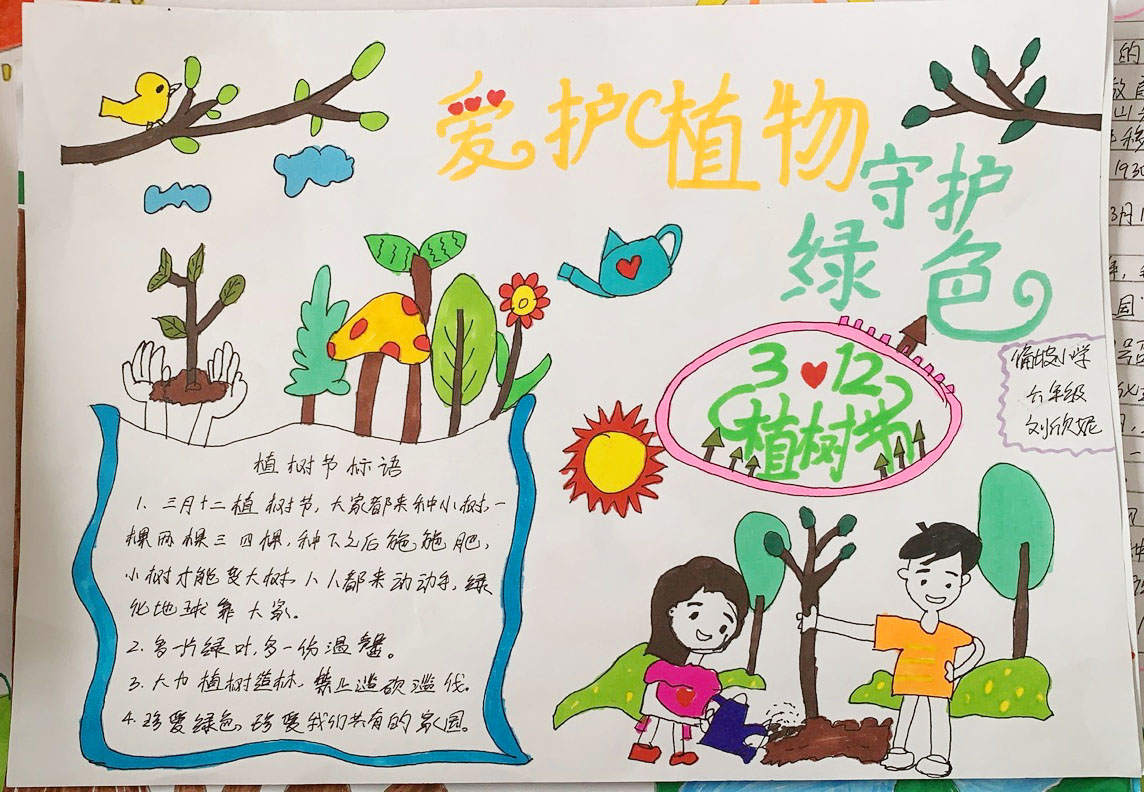 爱护植物
守护
绿色
3 12
植树节
六年级
刘欣妮
植树节标语
1. 三月十二植树节,大家都来种小树,一
棵两棵三四棵,种下之后施施肥,
小树才能变大树,人人都来动动手,绿
化地球靠大家。
2. 多一片绿叶,多一份温馨。
3. 大力植树造林,禁止滥砍滥伐。
4. 珍爱绿色,珍爱我们共有的家园。
的
山
1930
3月1
园